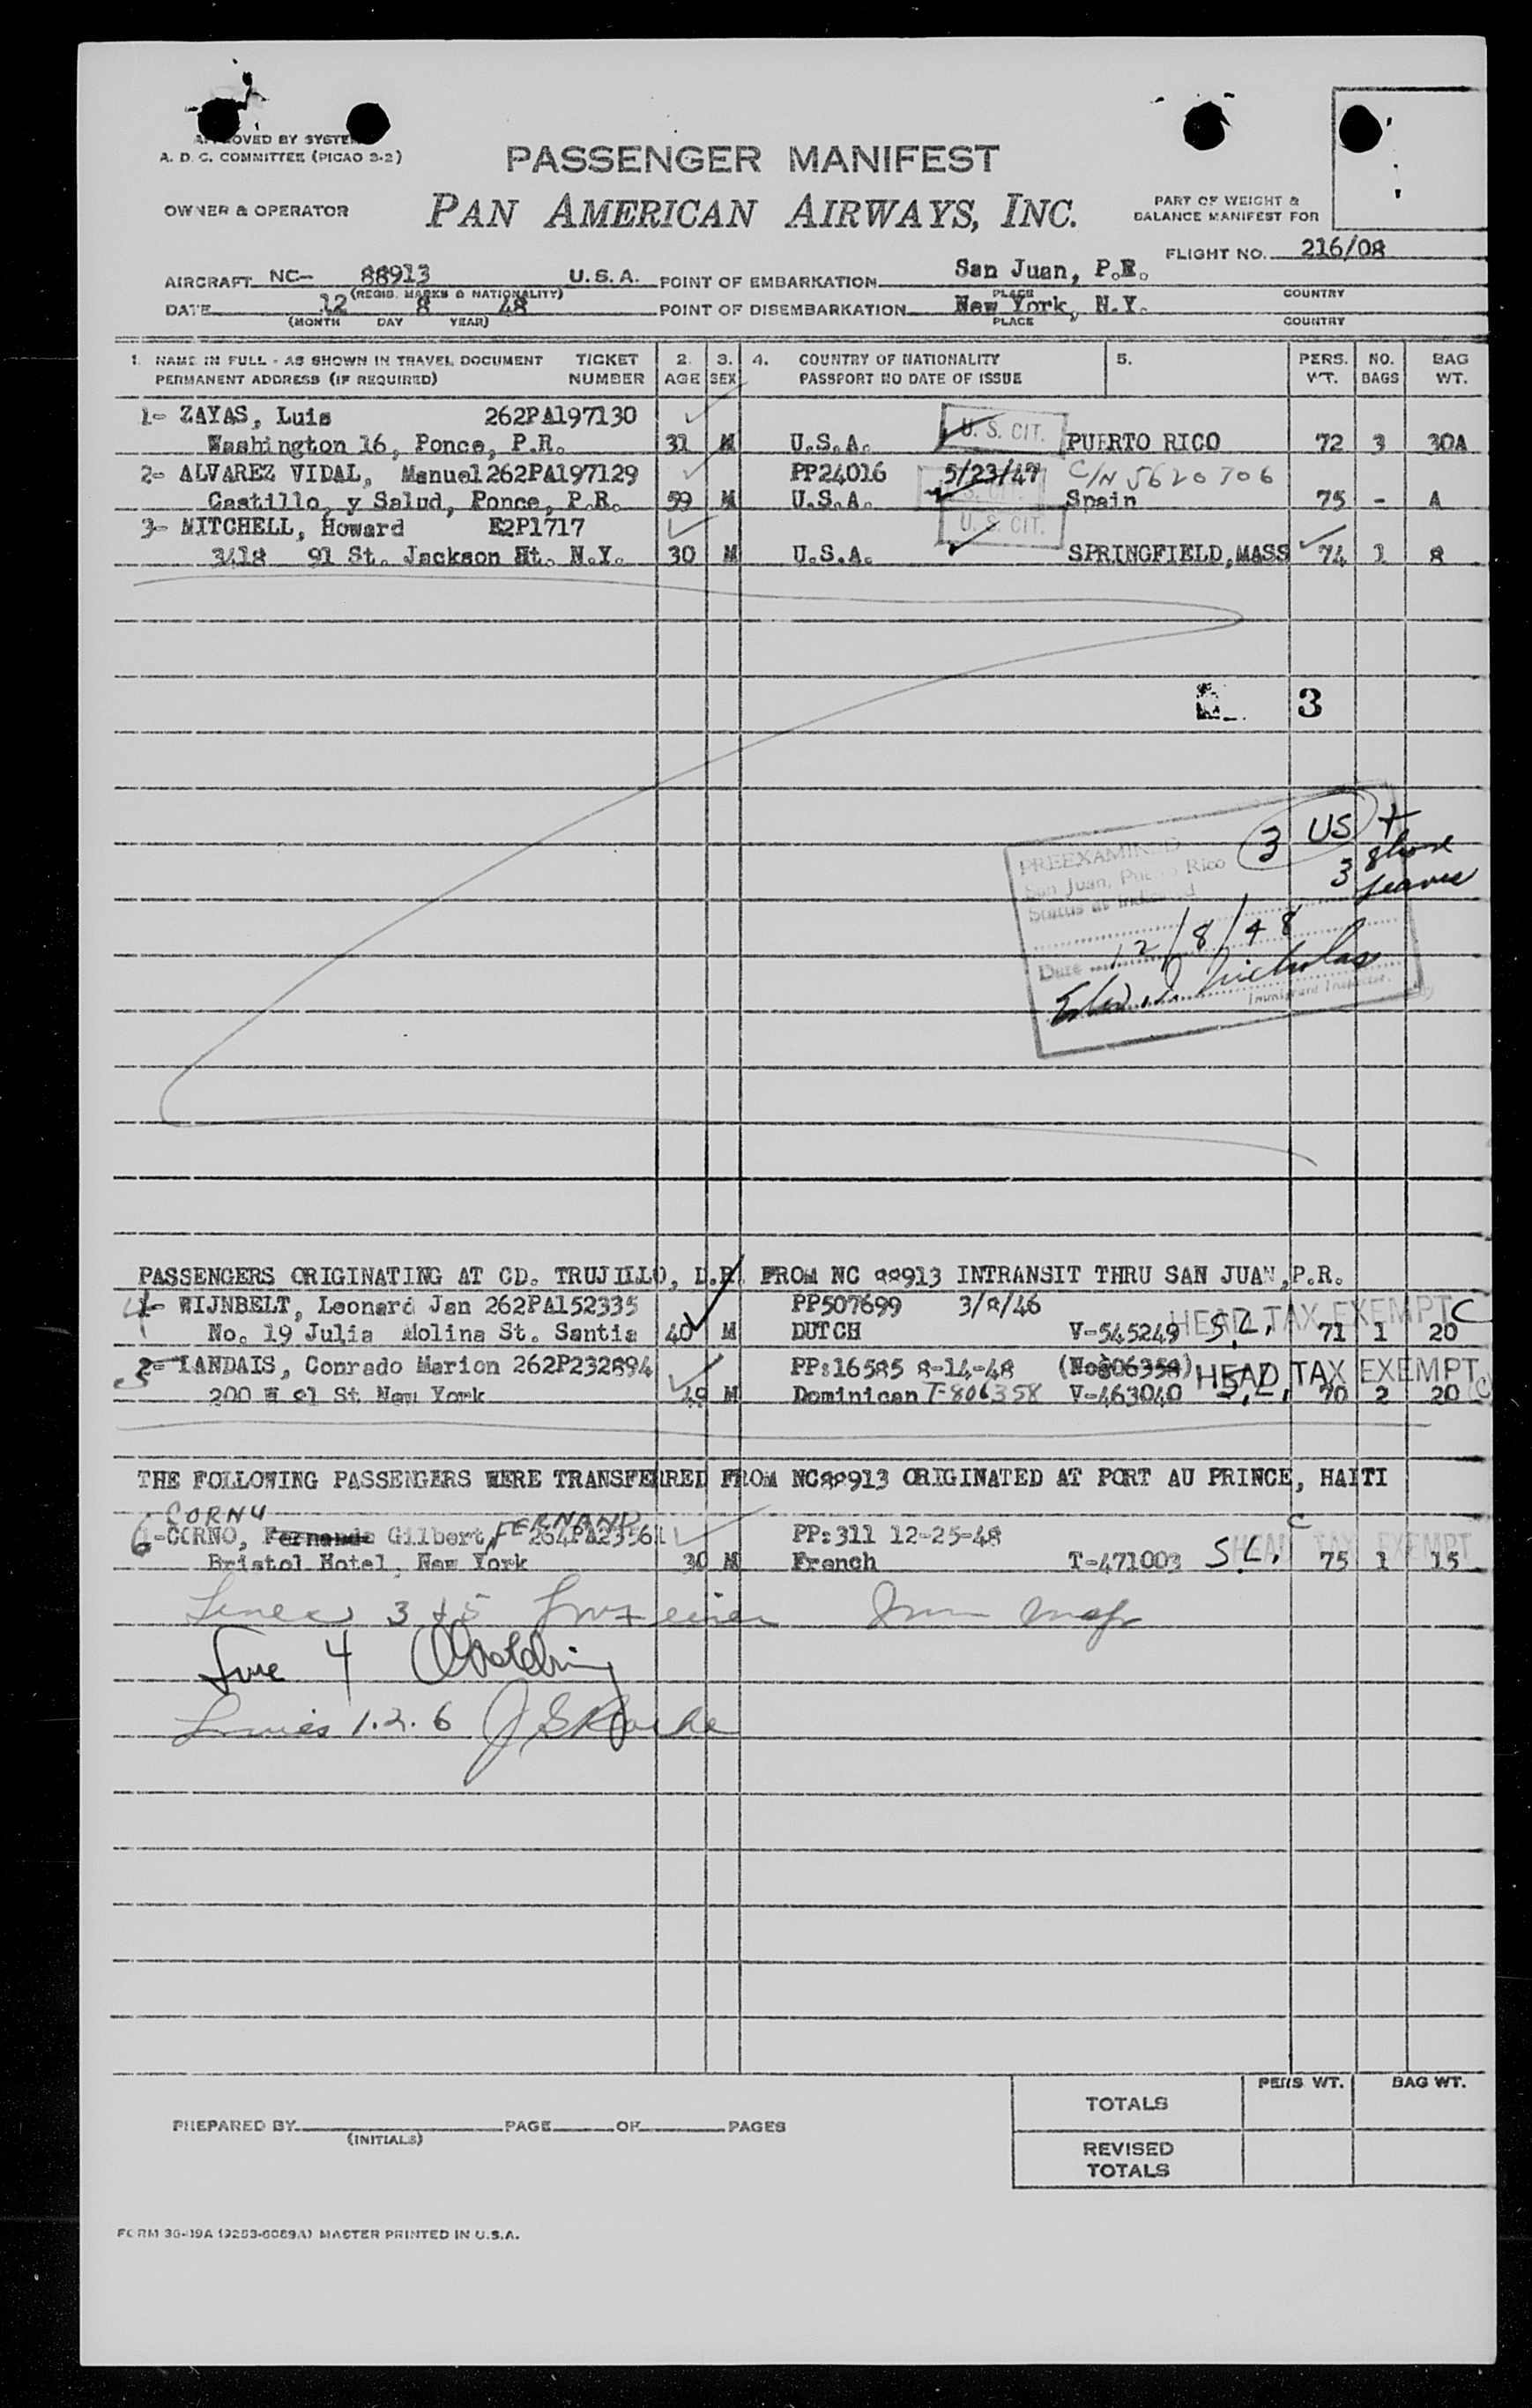 APPROVED BY SYSTEM
A. D. C. COMMITTEE (PICAO 3-2)
PASSENGER MANIFEST
OWNER & OPERATOR
PAN AMERICAN AIRWAYS, INC.
PART OF WEIGHT &
BALANCE MANIFEST FOR
FLIGHT NO. 216/08
AIRCRAFT NC- 88913 U.S.A. POINT OF EMBARKATION San Juan, P.R.
(REGIS. MARKS & NATIONALITY) PLACE COUNTRY
DATE 12 8 48 POINT OF DISEMBARKATION New York, N.Y.
(MONTH DAY YEAR) PLACE COUNTRY
1. NAME IN FULL - AS SHOWN IN TRAVEL DOCUMENT TICKET 2. 3. 4. COUNTRY OF NATIONALITY 5. PERS. NO. BAG
PERMANENT ADDRESS (IF REQUIRED) NUMBER AGE SEX PASSPORT NO DATE OF ISSUE WT. BAGS WT.
1- ZAYAS, Luis 262PA197130 U. S. CIT.
Washington 16, Ponce, P.R. 31 M U.S.A. PUERTO RICO 72 3 30A
2- ALVAREZ VIDAL, Manuel 262PA197129 PP24016 5/23/47 C/N 5620706
Castillo, y Salud, Ponce, P.R. 59 M U.S.A. U.S. CIT. Spain 75 - A
3- MITCHELL, Howard E2P1717 U. S. CIT.
3418 91 St. Jackson Ht. N.Y. 30 M U.S.A. SPRINGFIELD, MASS 74 1 8
3
3 US +
3
PREEXAMINED
San Juan, Puerto Rico
Status as Indicated
Date 12/8/48
Nicholas
Immigrant Inspector.
PASSENGERS ORIGINATING AT CD. TRUJILLO, D.R. FROM NC 88913 INTRANSIT THRU SAN JUAN, P.R.
4 1- WIJNBELT, Leonard Jan 262PA152335 PP507699 3/8/46 HEAD TAX EXEMPT C
No. 19 Julia Molina St. Santia 40 M DUTCH V-545249 S.L. 71 1 20
5 2- LANDAIS, Conrado Marion 262P232894 PP:16585 8-14-48 (No806358) HEAD TAX EXEMPT
200 W 81 St. New York 49 M Dominican T-806358 V-463040 S.L. 70 2 20 C
THE FOLLOWING PASSENGERS WERE TRANSFERRED FROM NC88913 ORIGINATED AT PORT AU PRINCE, HAITI
CORNU FERNAND
6 -CORNO, Fernando Gilbert, 264PA23561 PP:311 12-25-48 C HEAD TAX EXEMPT
Bristol Hotel, New York 30 M French T-471003 S.L. 75 1 15
Lines 3 & 5
Line 4
Lines 1.2.6
PERS WT. BAG WT.
TOTALS
PREPARED BY PAGE OF PAGES
(INITIALS)
REVISED
TOTALS
FORM 36-19A (9253-6089A) MASTER PRINTED IN U.S.A.